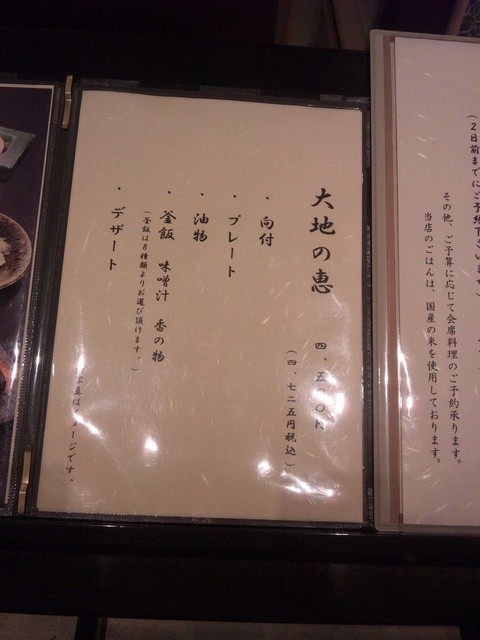 (2日前までにご予約下さいませ)
その他、ご予算に応じて会席料理のご予約承ります。
当店のごはんは、国産の米を使用しております。
大地の恵 四、五〇〇円
(四、七二五円税込)
・向付
・プレート
・油物
・釜飯 味噌汁 香の物
(釜飯は8種類よりお選び頂けます。)
・デザート
写真はイメージです。